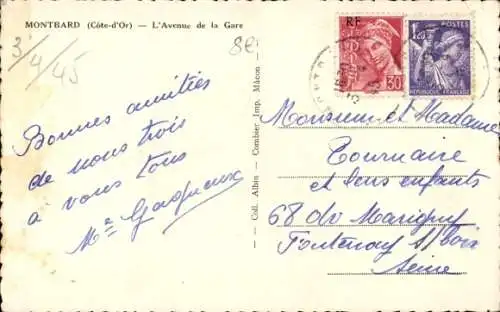 MONTBARD (Côte-d'Or) — L'Avenue de la Gare
3/4/45
8€
RF
30
POSTES
RÉPUBLIQUE FRANÇAISE
Bonnes amitiés
de nous trois
à vous tous
Coll. Albin — Combier Imp. Mâcon
Monsieur et Madame
Tournaire
et leurs enfants
68 Marigny
Fontenay s/ bois
Seine